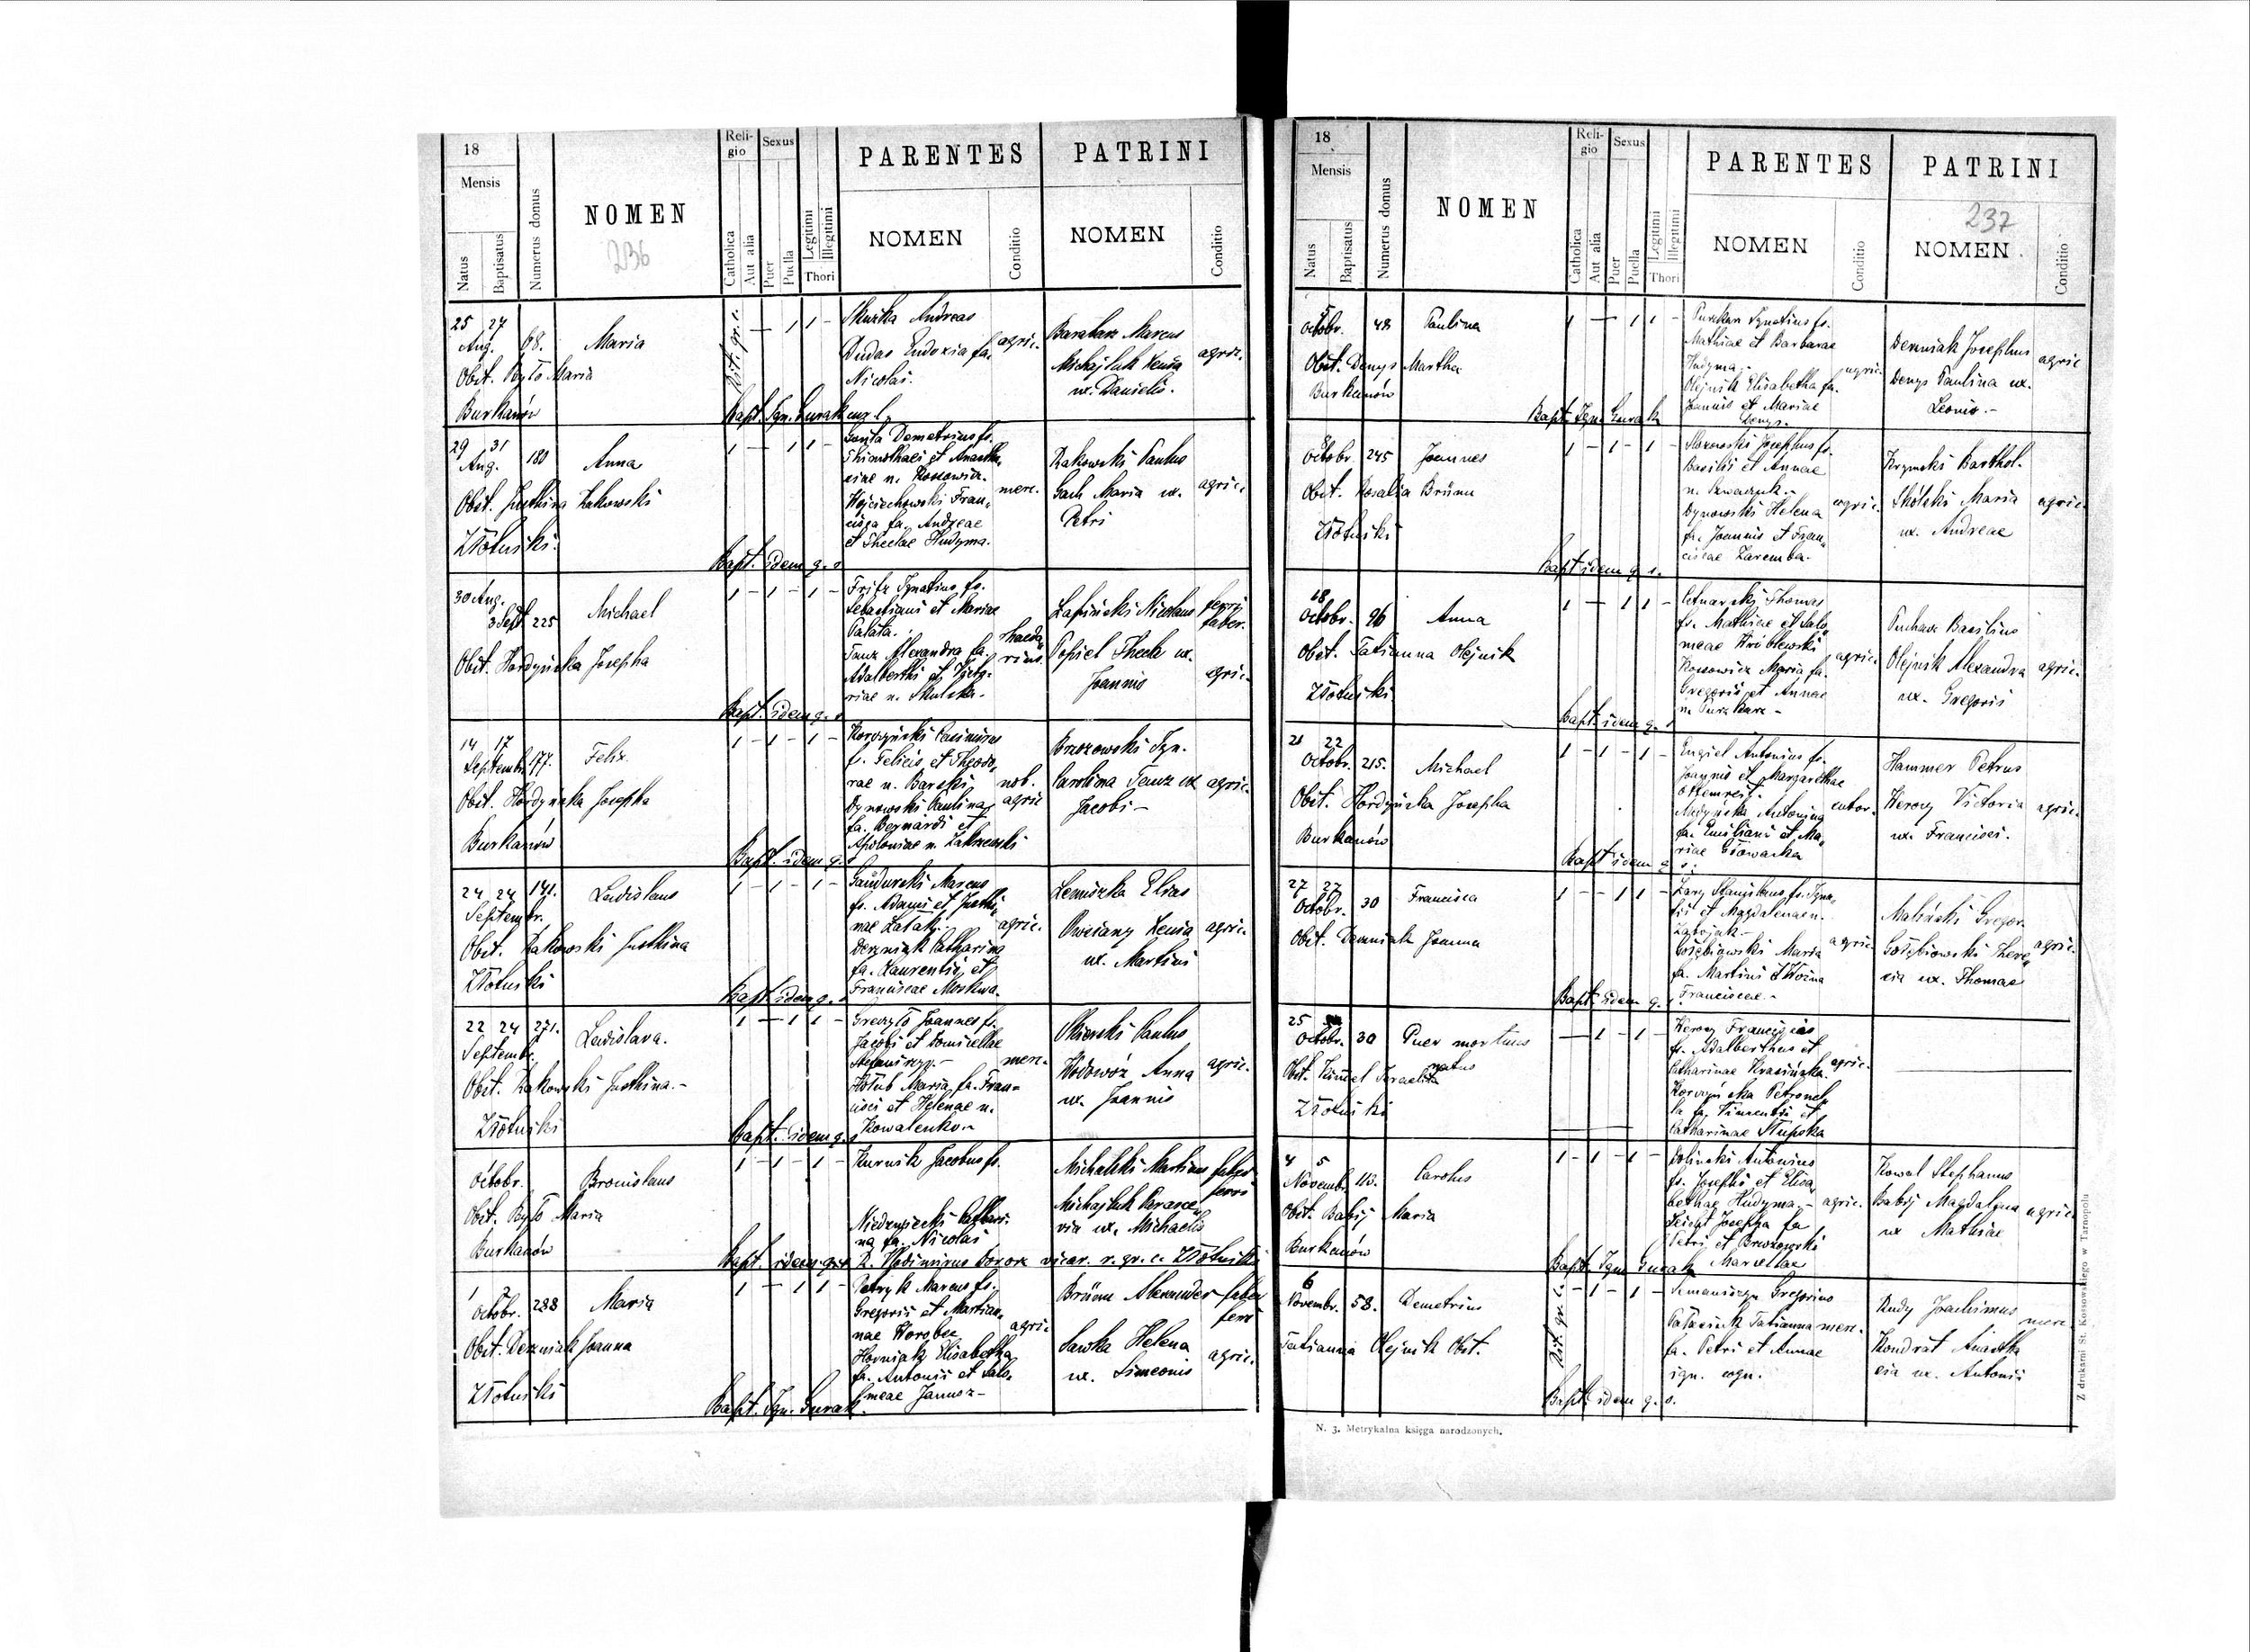 18
Mensis
Natus
Baptisatus
Numerus domus
NOMEN
236
Reli-
gio
Catholica
Aut alia
Sexus
Puer
Puella
Legitimi
Illegitimi
Thori
PARENTES
NOMEN
Conditio
PATRINI
NOMEN
Conditio
25 27
Aug. 68. Maria
Obst. Było Maria
Burkanów
Rit. gr. c.
1 1
Skuzka Andreas
Dudas Eudoxia fa.
Nicolai.
agric.
Barabasz Marcus
Michajluk Xenia
ux. Danielis.
agric.
Bapt. Ign. Gurak
29 31
Aug. 180 Anna
Obst. Justina Zakowski
Złotniki.
1 - 1 1 -
Gonta Demetrius fs.
Thimothaei et Anasta,
siae n. Kossowicz.
Wojciechowski Fran,
cisca fa. Andreae
et Theclae Hudyma.
merc.
Rakowski Paulus
Gach Maria ux.
Petri
agric.
Bapt. idem q. s
30 Aug.
3 Sept. 225 Michael
Obst. Hordyńska Josepha
1 - 1 - 1 -
Fritz Ignatius fs.
Sebastiani et Mariae
Palata.
Tanz Alexandra fa.
Adalberti et
riae n.
Łapiński Nicolaus
Popiel Thecla ux.
Joannis
ferri
faber.
agric.
Bapt. idem q. s
14 17
Septembr. 177. Felix
Obst. Hordyńska Josepha
Burkanów
1 - 1 - 1 -
Korczyński Casimirus
f. Felicis et Theodo,
rae n. Barski
Dynowski Paulina
fa. Bernardi et
Apoloniae n. Zakrzewski
nob.
agric
Brzozowski Ign.
Carolina Tanz ux
Jacobi -
agric.
Bapt. idem q. s
24 24 141. Ladislaus
Septembr.
Obst. Zakowski Justina
Złotniki
1 - 1 - 1 -
Gandurski Marcus
fs. Adami et Justi,
nae
Derzniak Catharina
fa. Laurentii et
Franciscae Moskwa.
agric.
Lemiszka Elias
Owczany Xenia
ux. Martini
agric.
Bapt. idem q. s
22 24 271. Ladislava.
Septembr.
Obst. Zakowski Justina. -
Złotniki
1 - 1 1 -
Greczyło Joannes fs.
Jacobi et Domicellae
Stefaniszyn. -
Hołub Maria fa. Fran=
cisci et Helenae n.
Kowalenko. -
merc.
Olszewski Paulus
Wodowóz Anna
ux. Joannis
agric.
Bapt. idem q. s
Octobr. Bronislaus
Obst. Było Maria
Burkanów
1 - 1 - 1 -
Kurnik Jacobus fs.
Niedzwiecki Cathari
na fa. Nicolai
Michalski Martinus
Michajluk Parasce,
via ux. Michaelis
faber
ferri
Bapt. idem q. s R. Wladimirus vicar. r. gr. c. Złotniki
1 2
Octobr. 288 Maria
Obst. Derzniak Joanna
Złotniki
1 - 1 1 -
Petryk Marcus fs.
Gregorii et Martian,
nae Worobec
Horniak Elisabetha
fa. Antonii et Salo,
meae Janusz -
agric.
Brünn Alexander
Sawka Helena
ux. Simeonis
faber
ferri
agric.
Bapt. Ign. Gurak.
18
Mensis
Natus
Baptisatus
Numerus domus
NOMEN
Reli-
gio
Catholica
Aut alia
Sexus
Puer
Puella
Legitimi
Illegitimi
Thori
PARENTES
NOMEN
Conditio
PATRINI
237
NOMEN
Conditio
5
Octobr. 48 Paulina
Obst. Denys Martha
Burkanów
1 - 1 1 -
Puzkar Ignatius fs.
Mathiae et Barbarae
Hudyma. -
Olejnik Elisabetha fa.
Joannis et Mariae
Denys. -
agric.
Derzniak Josephus
Denys Paulina ux.
Leonis. -
agric
Bapt. Ign. Gurak
Octobr. 245 Joannes
Obst. Rosalia Brünn
Złotniki
1 - 1 - 1 -
Josephus fs.
Basilii et Annae
Dynowski Helena
fa. Joannis et Fran,
ciscae Zaremba.
agric.
Krynski Barthol.
Skólski Maria
ux. Andreae
agric.
Bapt idem q. s.
18
Octobr. 96 Anna
Obst. Tatianna Olejnik
Złotniki
1 - 1 1 -
Cetnarski Thomas
fs. Mathiae et Salo,
meae Wróblewski
Kossowicz Maria fa.
Gregorii et Annae
n. Puzkar -
agric.
Puchacz Basilius
Olejnik Alexandra
ux. Gregorii
agric.
Bapt idem q. s
21 22
Octobr. 215. Michael
Obst. Hordyńska Josepha
Burkanów
1 - 1 - 1 -
Engiel Antonius fs.
Joannis et Margarethae
Medyńska Antonina
fa. Emiliani et Ma,
riae Głowacka
Hammer Petrus
Herow Victoria
ux. Francisci.
agric.
Bapt idem q. s.
27 27
Octobr. 30 Francisca
Obst. Derzniak Joanna
1 - - 1 1 -
Zary Stanislaus fs. Igna,
tii et Magdalenae n.
Gołębiowski Maria
fa. Martini
Franciscae. -
agric.
Maliński Gregor.
Gołębiowski There,
sia ux. Thomae
agric.
Bapt. idem q. s
25
Octobr. 30 Puer mortuus
natus
Obst. Kimmel Israelita
Złotniki
- 1 - 1 -
Herow Franciscus
fs. Adalberthus et
Catharinae Krasińska.
Korczyńska Petronel,
la fa. Vincentii et
Catharinae Słupska
agric.
4 5
Novembr. 113. Carolus
Obst. Babij Maria
Burkanów
1 - 1 - 1 -
Soliński Antonius
fs. Josephi et Elisa,
bethae Hudyma -
Josepha fa
Petri et Brzozowski
Marcellae
agric.
Kowal Stephanus
Babij Magdalena
ux Mathiae
agric.
Bapt. Ign. Gurak
6
Novembr. 58. Demetrius
Tatianna Olejnik Obst.
Rit. gr. c.
- 1 - 1 -
Semaniszyn Gregorius
Tatianna
fa. Petri et Annae
ign. cogn.
merc.
Rudy Joachimus
Kondrat Anasta
sia ux. Antonii
merc.
Bapt. idem q. s.
N. 3. Metrykalna księga narodzonych.
Z drukarni St. Kossowskiego w Tarnopolu